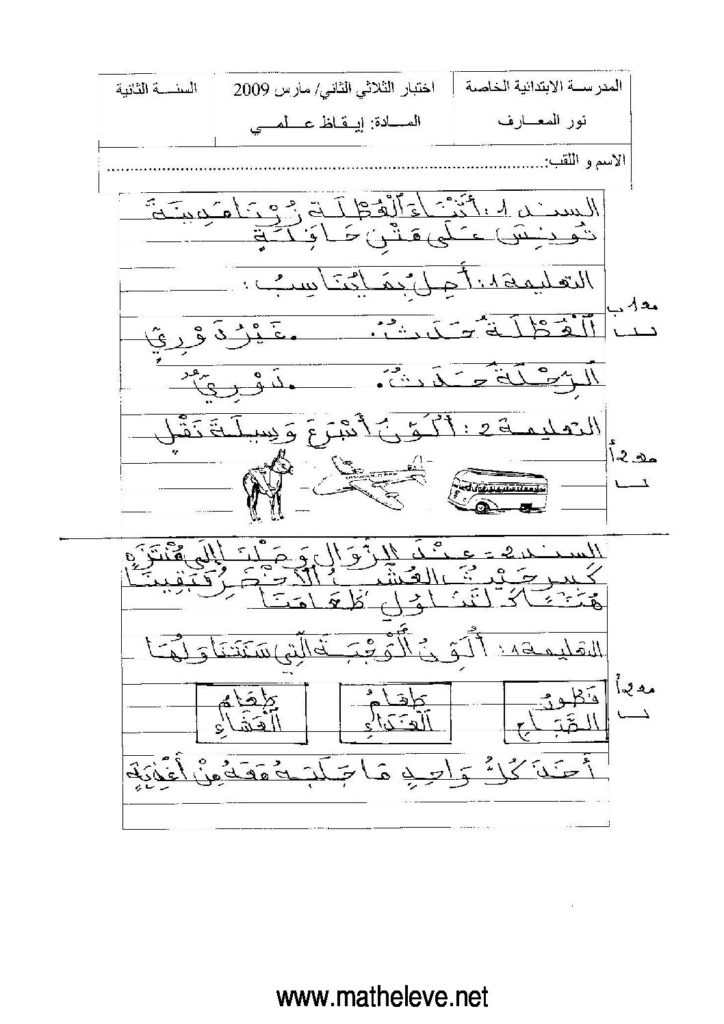 المدرسة الابتدائية الخاصة
نور المعارف
اختبار الثلاثي الثاني/ مارس 2009
المادة: إيقاظ علمي
السنة الثانية
الاسم و اللقب:
السند 1: أَثْنَاءَ الْعُطْلَةِ زُرْنَا مَدِينَةَ
تُونِسَ عَلَى مَتْنِ حَافِلَةٍ
التعليمة 1: أَصِلُ بِمَا يُنَاسِبُ:
مع 1 ب
الْعُطْلَةُ حَدَثٌ . . غَيْرُ دَوْرِيٍّ
الرِّحْلَةُ حَدَثٌ . . دَوْرِيٌّ
التعليمة 2: أُلَوِّنُ أَسْرَعَ وَسِيلَةَ نَقْلٍ
مع 2 أ
السند 2 = عِنْدَ الزَّوَالِ وَصَلْنَا إِلَى مُنْتَزَهٍ
كَبِيرٍ حَيْثُ الْعُشْبُ الْأَخْضَرُ فَبَقِينَا
هُنَاكَ لِتَنَاوُلِ طَعَامِنَا
التعليمة 1: أُلَوِّنُ الْوَجْبَةَ الَّتِي سَنَتَنَاوَلُهَا
مع 2 أ
فَطُورُ الصَّبَاحِ
طَعَامُ الْغَدَاءِ
طَعَامُ الْعَشَاءِ
أَخَذَ كُلُّ وَاحِدٍ مَا جَلَبَهُ مَعَهُ مِنْ أَغْذِيَةٍ
www.matheleve.net